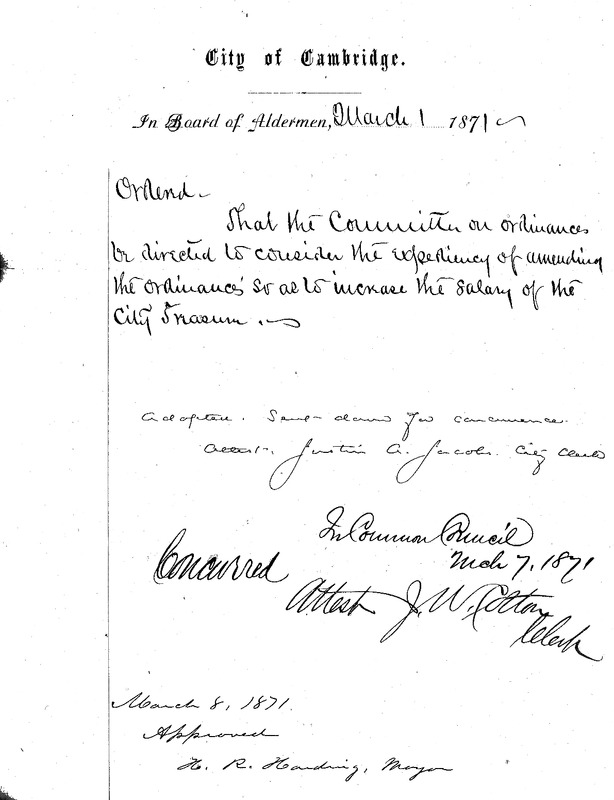 City of Cambridge.
In Board of Aldermen, March 1 1871
Ordered
That the Committee on ordinances
be directed to consider the expediency of amending
the ordinances so as to increase the salary of the
City Treasurer.
Adopted. Sent down for concurrence.
Attest. Justin A. Jacobs. City Clerk
In Common Council
Mch 7, 1871
Concurred
Attest J. W. Cotton
Clerk
March 8, 1871.
Approved
H. R. Harding, Mayor